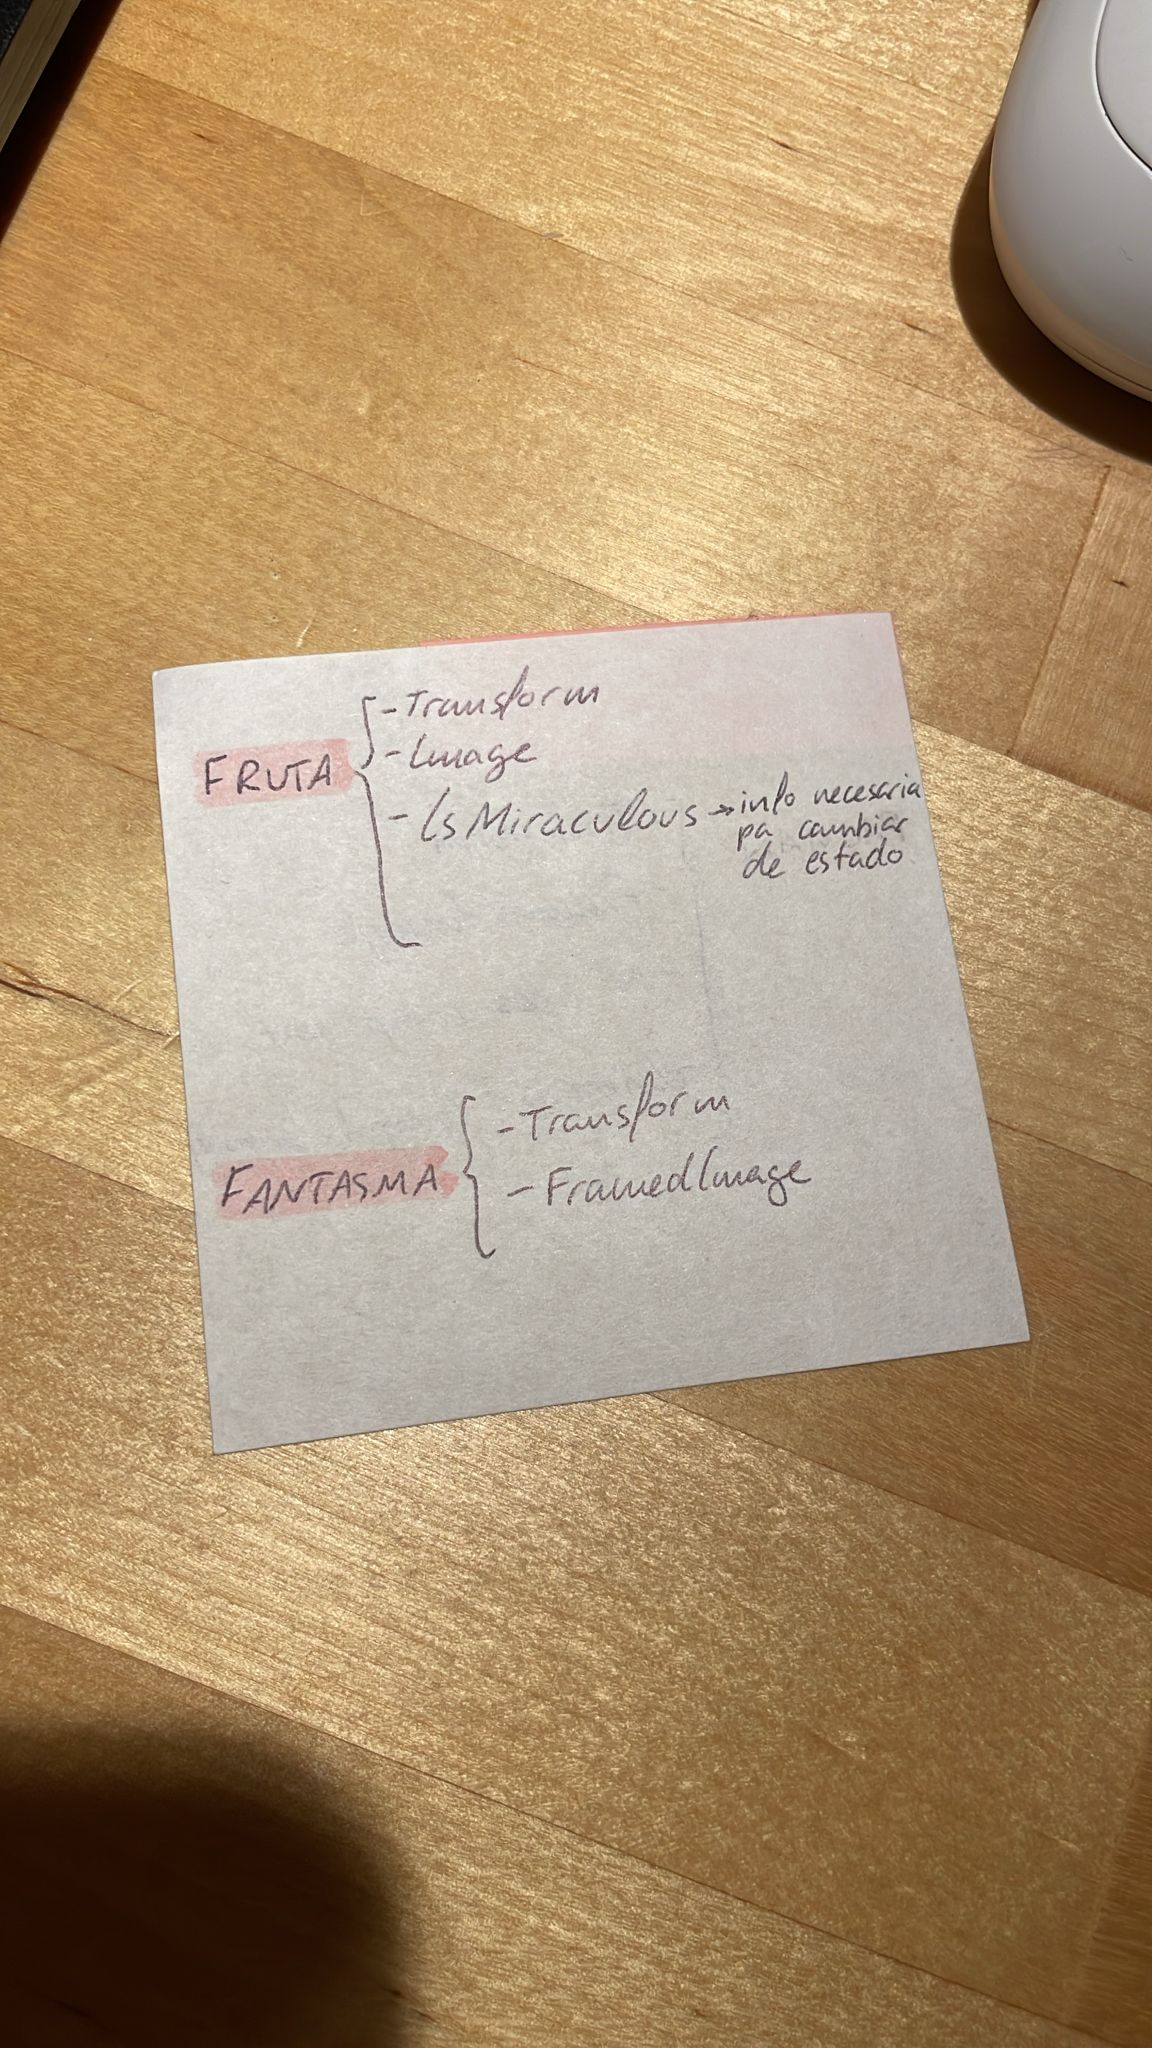 FRUTA
-Transform
-Image
-IsMiraculous → info necesaria
pa cambiar
de estado
FANTASMA
-Transform
-FramedImage